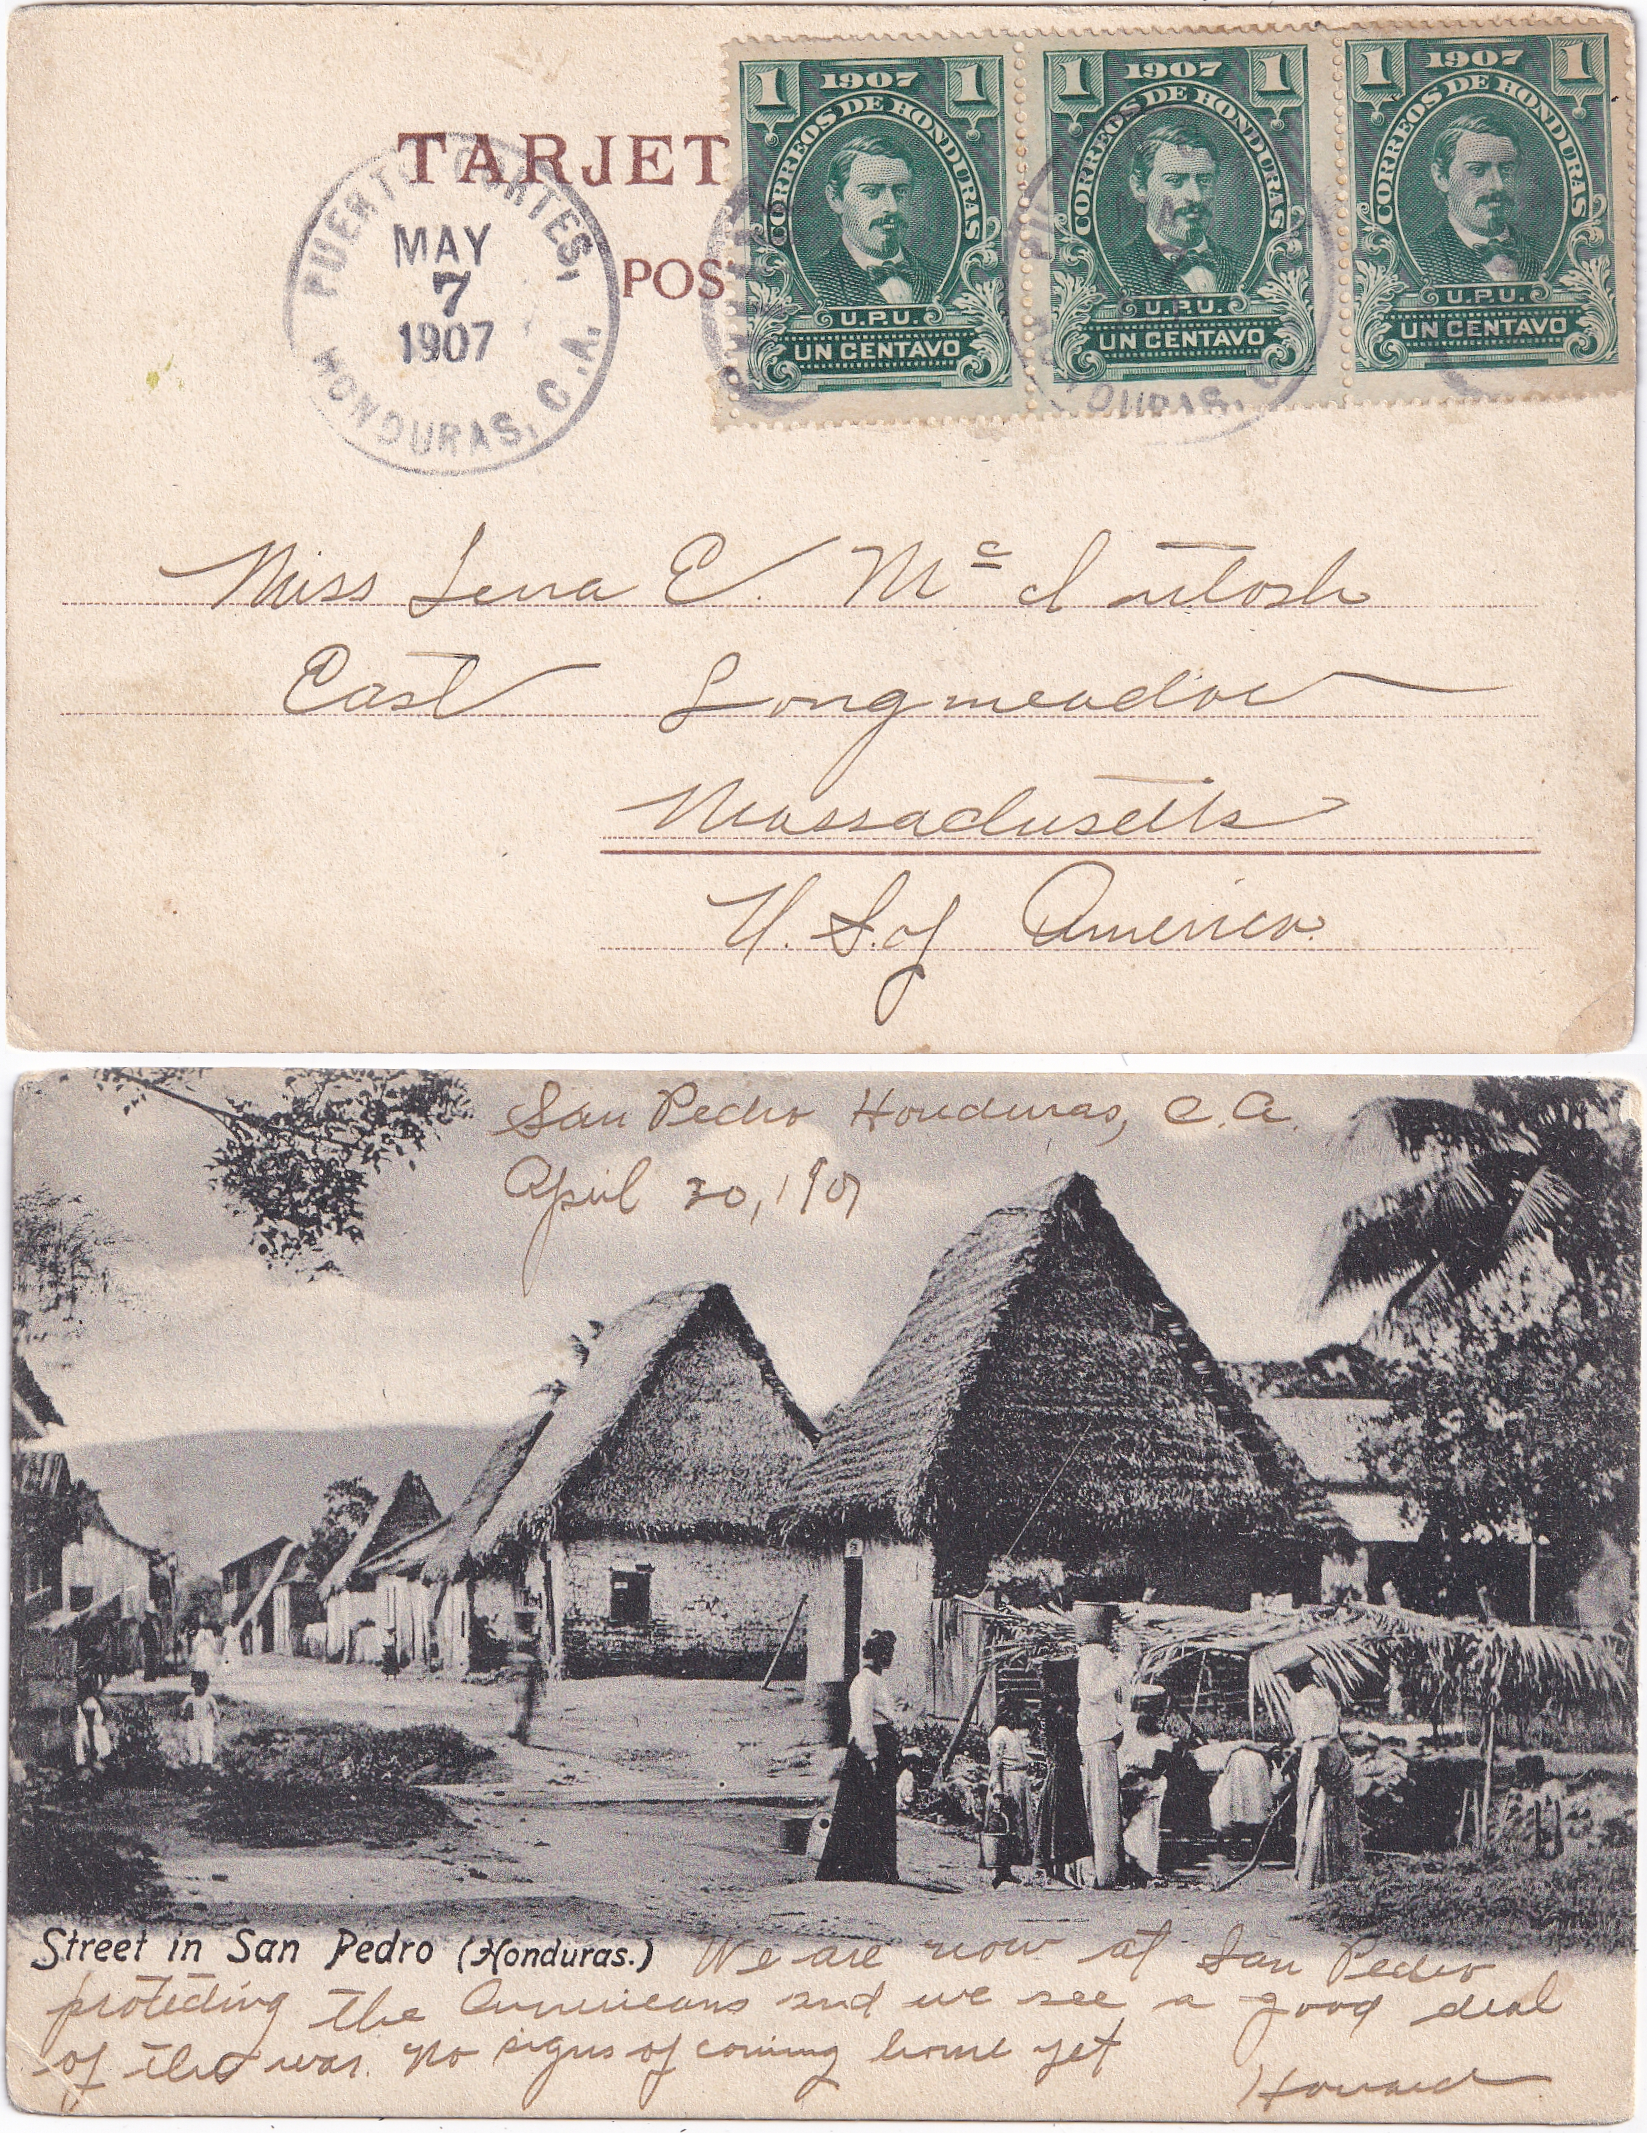 TARJET
POS
PUERTO CORTES,
MAY
7
1907
HONDURAS, C.A.
1 1907 1
CORREOS DE HONDURAS
U.P.U.
UN CENTAVO
1 1907 1
CORREOS DE HONDURAS
U.P.U.
UN CENTAVO
1 1907 1
CORREOS DE HONDURAS
U.P.U.
UN CENTAVO
Miss Lena E. Mc Intosh
East Longmeadow
Massachusetts
U. S. of America.
San Pedro Honduras, C.A.
April 30, 1907
Street in San Pedro (Honduras.) We are now at San Pedro
protecting the Americans and we see a good deal
of the war. No signs of coming home yet
Howard